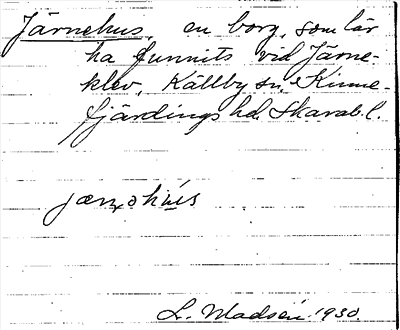 Järnehus, en borg, som lär
ha funnits vid Järne-
klev, Källby sn, Kinne-
fjärdings hd. Skarab. l.
L. Madsén 1930.